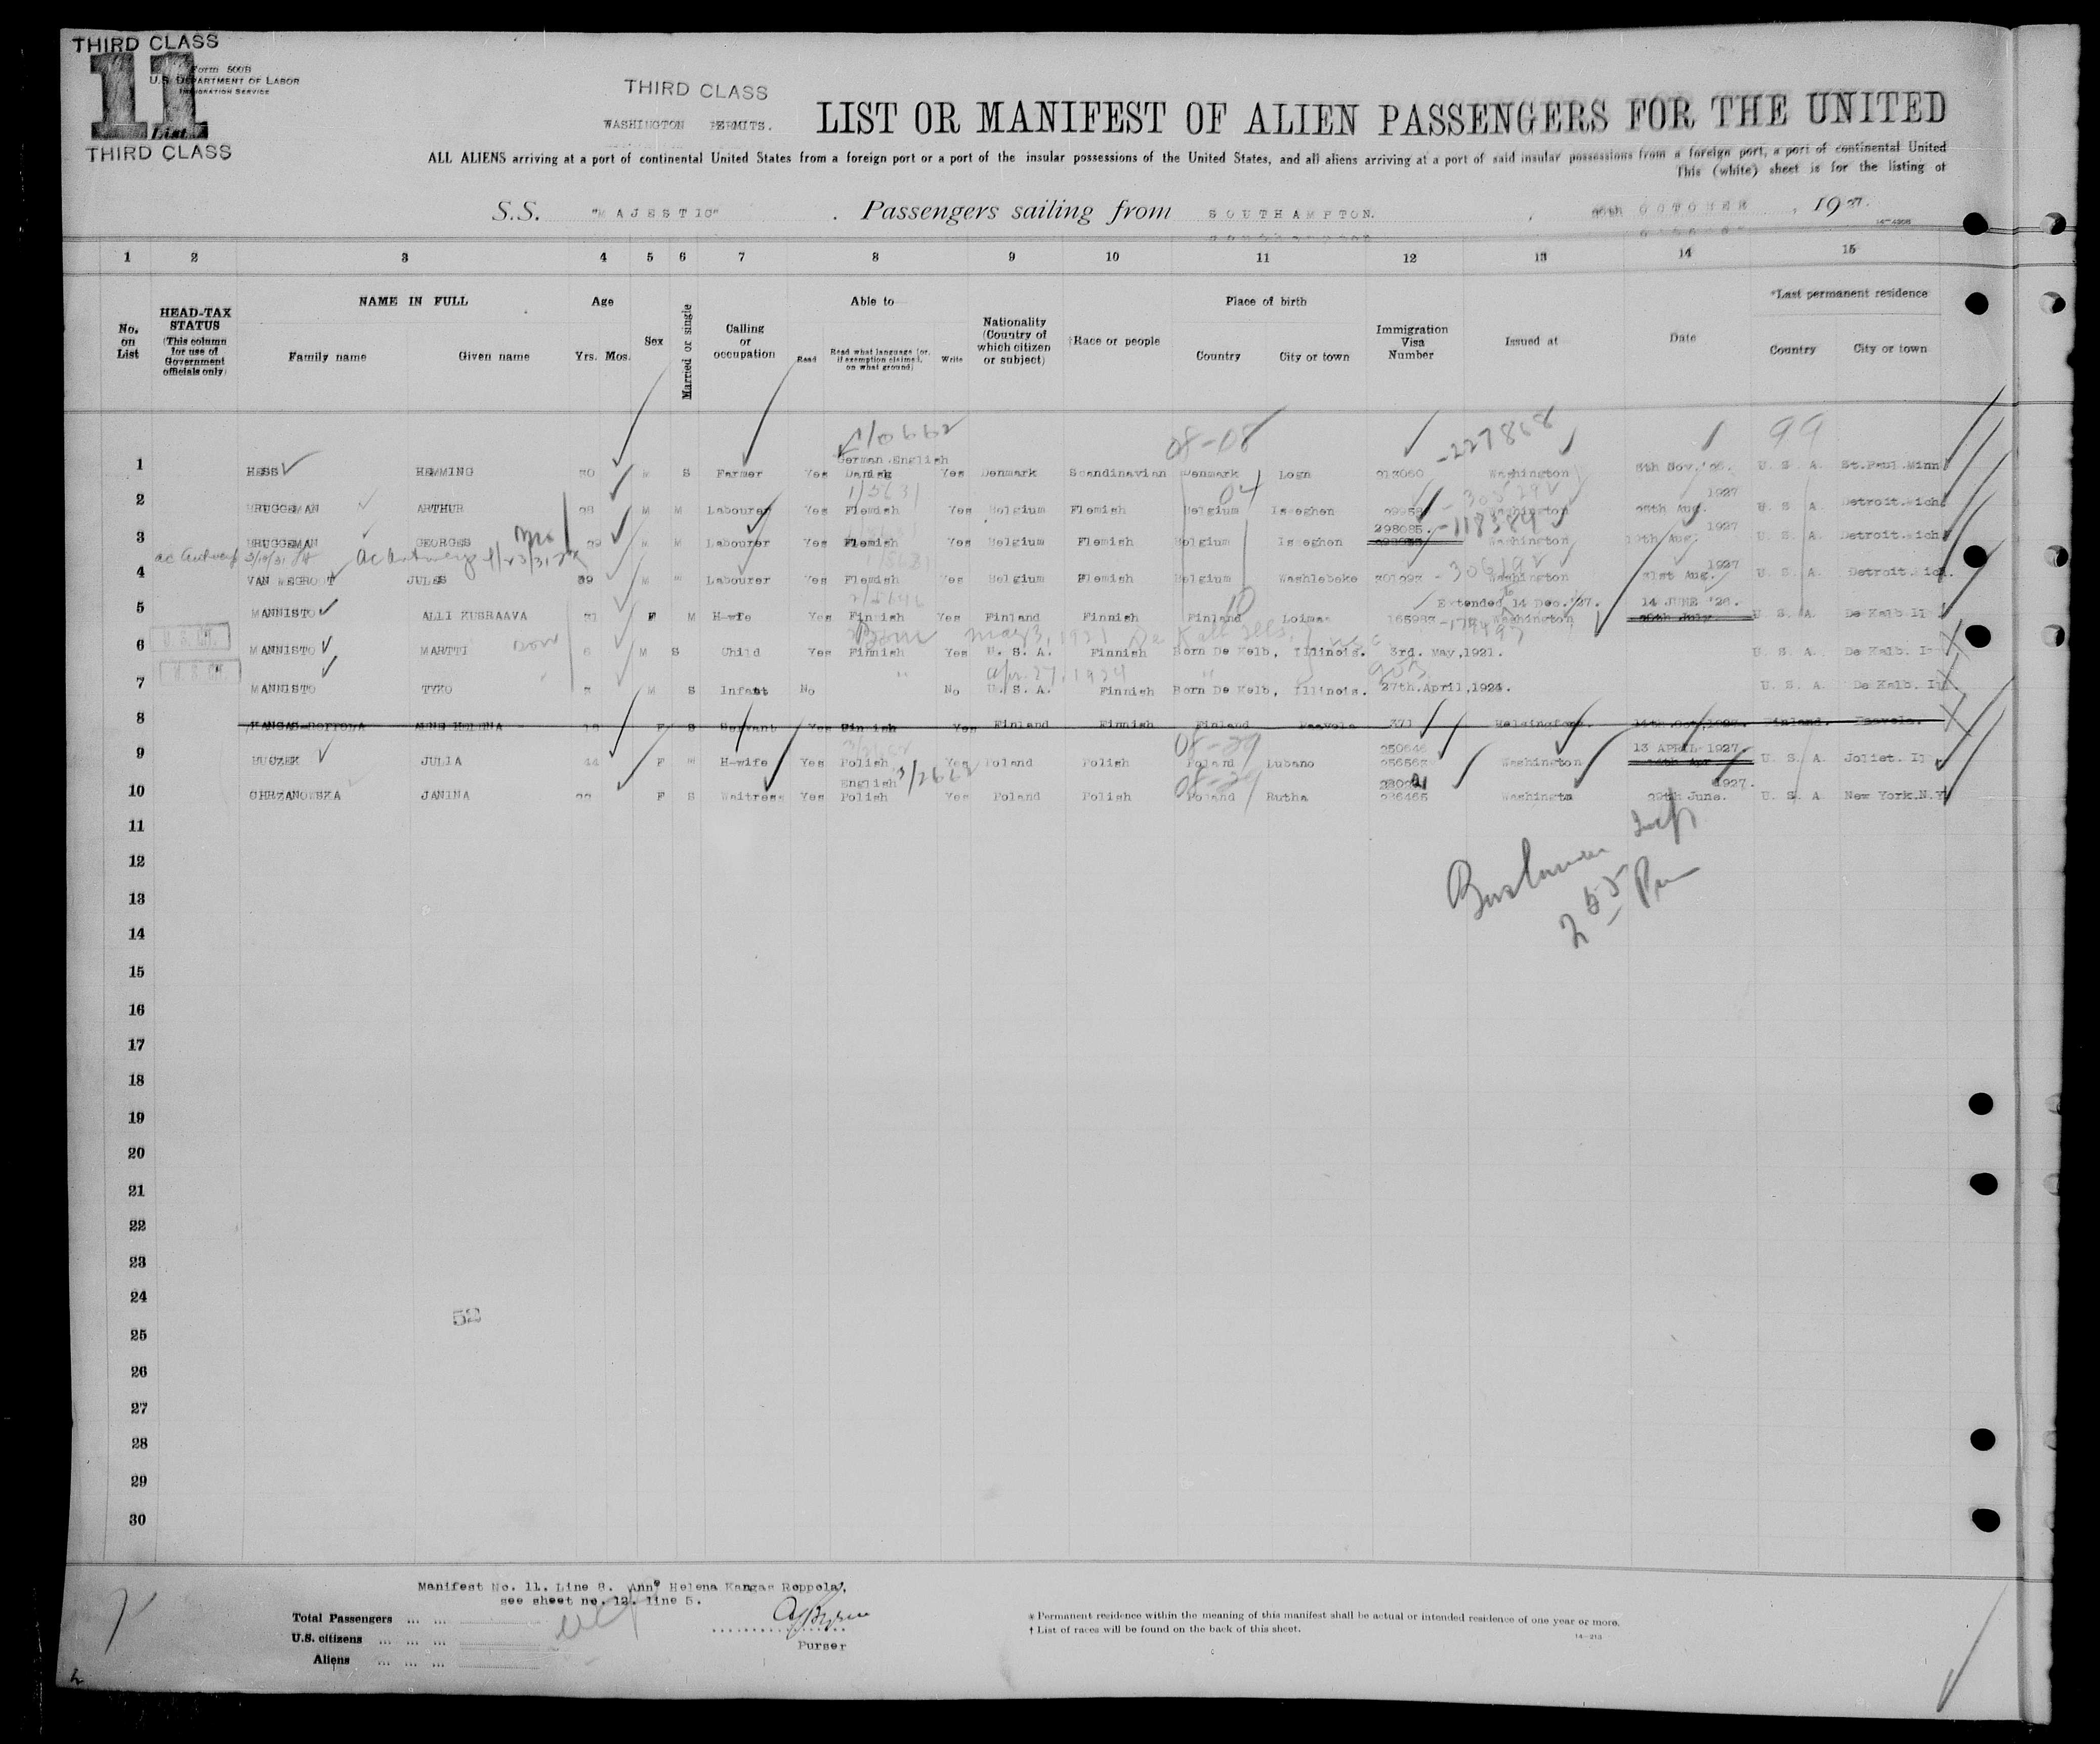 THIRD CLASS
11
Form 500B
U.S. DEPARTMENT OF LABOR
IMMIGRATION SERVICE
List
THIRD CLASS
THIRD CLASS
WASHINGTON PERMITS.
LIST OR MANIFEST OF ALIEN PASSENGERS FOR THE UNITED
ALL ALIENS arriving at a port of continental United States from a foreign port or a port of the insular possessions of the United States, and all aliens arriving at a port of said insular possessions from a foreign port, a port of continental United
This (white) sheet is for the listing of
S.S. "MAJESTIC" . Passengers sailing from SOUTHAMPTON. , OCTOBER , 1927.
1 2 3 4 5 6 7 8 9 10 11 12 13 14 15
No. on List
HEAD-TAX STATUS (This column for use of Government officials only)
NAME IN FULL
Family name Given name
Age
Yrs. Mos.
Sex
Married or single
Calling or occupation
Able to
Read Read what language (or, if exemption claimed, on what ground) Write
Nationality (Country of which citizen or subject)
†Race or people
Place of birth
Country City or town
Immigration Visa Number
Issued at
Date
*Last permanent residence
Country City or town
1/0662 08-08 -227868 99
German.English
1 HESS HEMMING 30 M S Farmer Yes Danish Yes Denmark Scandinavian Denmark Logn 213060 Washington 8th Nov.'26. U. S. A. St.Paul.Minn
1/5631 04 1927
2 BRUGGEMAN ARTHUR 28 M M Labourer Yes Flemish Yes Belgium Flemish Belgium Iseghen Washington Aug. U. S. A. Detroit.Mich.
298085. -118384 1927
3 BRUGGEMAN GEORGES M M Labourer Yes Flemish Yes Belgium Flemish Belgium Iseghen Washington Aug. U. S. A. Detroit.Mich.
ac Antwerp 3/10/31 Ac Antwerp
-306192 1927
4 JULES 39 M M Labourer Yes Flemish Yes Belgium Flemish Belgium Washlebeke 301093 Washington 31st Aug. U. S. A. Detroit.Mich.
Extended to 14 Dec.'27. 14 JUNE '26.
5 MANNISTO ALLI KUSRAAVA 31 F M H-wfe Yes Finnish Yes Finland Finnish Finland Loimaa 165983 Washington U. S. A. De Kalb Il
U. S. CIT. Born May 3, 1921 De Kalb Ills.
6 MANNISTO MARTTI 6 M S Child Yes Finnish Yes U. S. A. Finnish Born De Kelb, Illinois. 3rd. May,1921. U. S. A. De Kalb. Il
U. S. CIT. " Apr. 27, 1924 "
7 MANNISTO TYKO M S Infant No No U. S. A. Finnish Born De Kelb, Illinois. 27th.April,1924. U. S. A. De Kalb. Il
8 KANGAS-ROPPOLA ANNE HELENA F S Servant Yes Finnish Yes Finland Finnish Finland Paavola 371 Helsingfors. 14th.Oct,1927. Finland. Paavola.
08-29 250648 13 APRIL 1927.
9 HUCZEK JULIA 44 F M H-wife Yes Polish Yes Poland Polish Poland Lubano 256563 Washington U. S. A. Joliet. Il
English 3/2662 08-29 1927.
10 CHRZANOWSKA JANINA F S Waitress Yes Polish Yes Poland Polish Poland Rutha 286465 Washingtn 29th June. U. S. A New York.N.Y.
11
12
13
2 55 Pm
14
15
16
17
18
19
20
21
22
23
24
52
25
26
27
28
29
30
Manifest No. 11. Line 8. Anne Helena Kangas Roppola,
see sheet no. 12. line 5.
Total Passengers ... ...
U.S. citizens ... ... ...
Aliens ... ... ...
Purser
* Permanent residence within the meaning of this manifest shall be actual or intended residence of one year or more.
† List of races will be found on the back of this sheet.
14-213